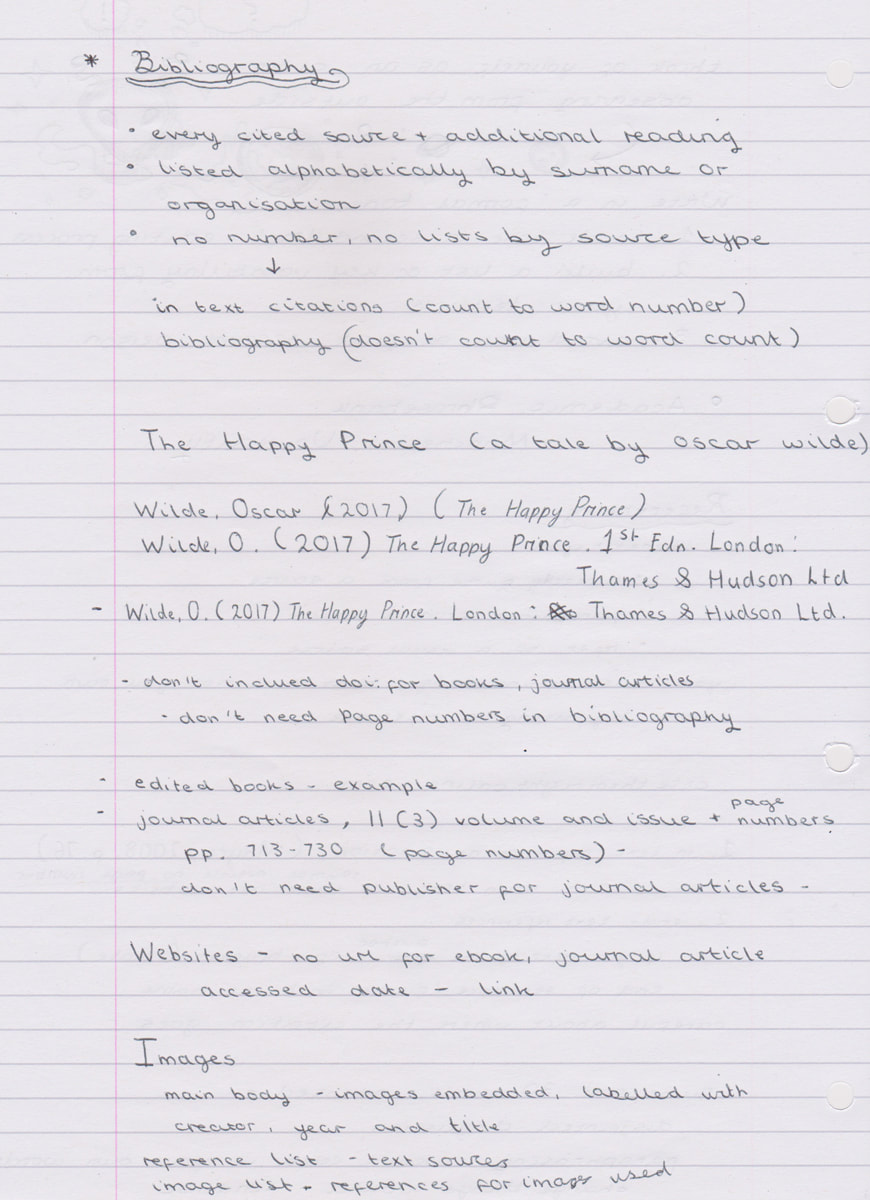 * Bibliography
• every cited source + additional reading
• listed alphabetically by surname or
organisation
• no number, no lists by source type
↓
in text citations (count to word number)
bibliography (doesn't count to word count)
The Happy Prince (a tale by oscar wilde)
Wilde, Oscar (2017) (The Happy Prince)
Wilde, O. (2017) The Happy Prince. 1st Edn. London:
Thames & Hudson Ltd
- Wilde, O. (2017) The Happy Prince. London: Thames & Hudson Ltd.
- don't inclued doi: for books, journal articles
- don't need page numbers in bibliography
- edited books - example
- journal articles, 11 (3) volume and issue + page numbers
pp. 713-730 (page numbers) -
don't need publisher for journal articles -
Websites - no url for ebook, journal article
accessed date - link
Images
main body - images embedded, labelled with
creator, year and title
reference list - text sources
image list - references for images used